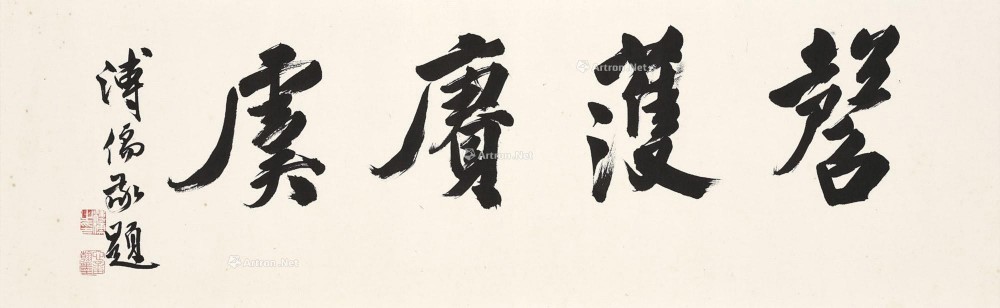 濩賡虞
溥儒敬題
Artron.Net
Artron.Net
Artron.Net